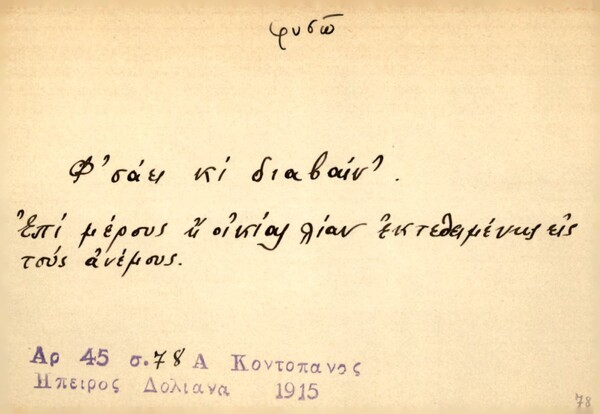 φυσῶ
Φ'σάει κί διαβαίν'.
Ἐπί μέρους ἤ οἰκίας λίαν ἐκτεθειμένης εἰς
τούς ἀνέμους.
Αρ 45 σ. 78 Α Κοντοπανος
Ηπειρος Δολιανα 1915
78